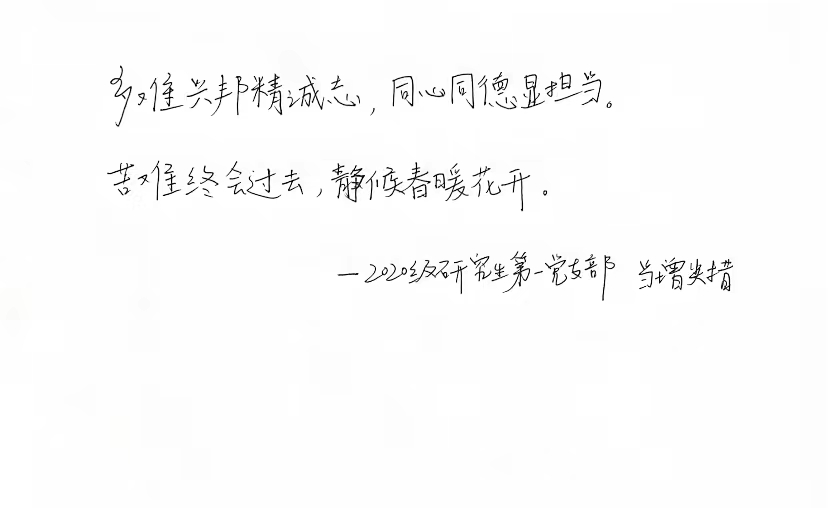 多难兴邦精诚志，同心同德显担当。
苦难终会过去，静候春暖花开。
—2020级研究生第一党支部 当增尖措